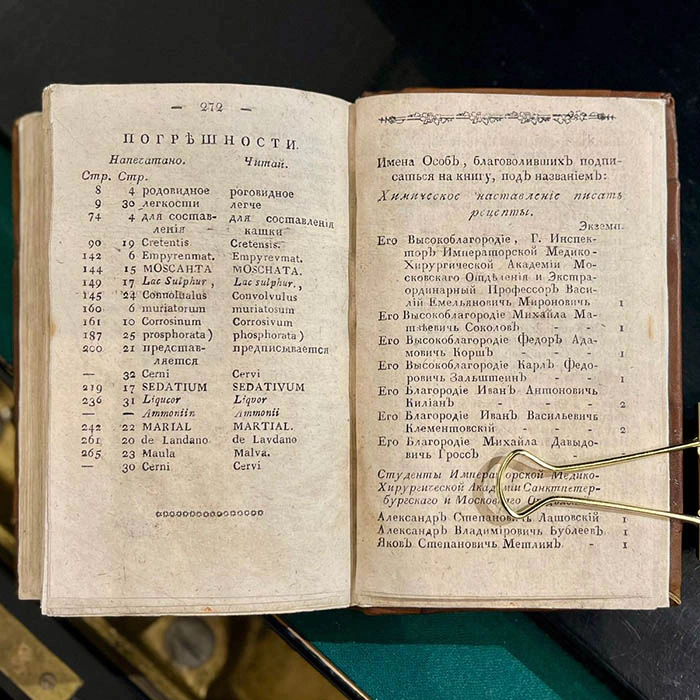 — 272 —
ПОГРѢШНОСТИ.
Напечатано. Читай.
Стр. Стр.
8 4 родовидное роговидное
9 30 легкости легче
74 4 для состав- для составленія
ленія кашки
90 19 Cretentis Cretensis.
142 6 Empyrenmat. Empyrevmat.
144 15 MOSCAHTA MOSCHATA.
149 17 Lac Sulphur, Lac sulphur.,
145 24 Connolualus Convolvulus
160 6 muriatorum muriatosum
161 10 Corrosinum Corrosivum
187 25 prosphorata) phosphorata)
200 21 представ- предписывается
ляется
— 32 Cerni Cervi
219 17 SEDATIUM SEDATIVUM
236 31 Liqucor Liquor
— — Ammoniin Ammonii
242 22 MARIAL MARTIAL.
261 20 de Landano de Lavdano
265 23 Maula Malva.
— 30 Cerni Cervi
Имена Особъ, благоволившихъ подпи-
саться на книгу, подъ названіемъ:
Химическое наставленіе писать
рецепты.
Экземп.
Его Высокоблагородіе, Г. Инспек-
торъ Императорской Медико-
Хирургической Академіи Мо-
сковскаго Отдѣленія и Экстра-
ординарный Профессоръ Васи-
лій Емельяновичь Мироновичь 1
Его Высокоблагородіе Михайла Ма-
твѣевичь Соколовъ - - - 1
Его Высокоблагородіе Федоръ Ада-
мовичь Коршъ - - - 1
Его Высокоблагородіе Карлъ Федо-
ровичь Зальштеинъ - - 1
Его Благородіе Иванъ Антоновичь
Киліанъ - - - - 2
Его Благородіе Иванъ Васильевичь
Клементовскій - - - 2
Его Благородіе Михайла Давыдо-
вичь Гроссъ
Студенты Императорской Медико-
Хирургической Академіи Санктпетер-
бургскаго и Московскаго
Александръ Степановичь Лашовскій 1
Александръ Владиміровичь Бублеевъ 1
Яковъ Степановичь Метлинъ - 1